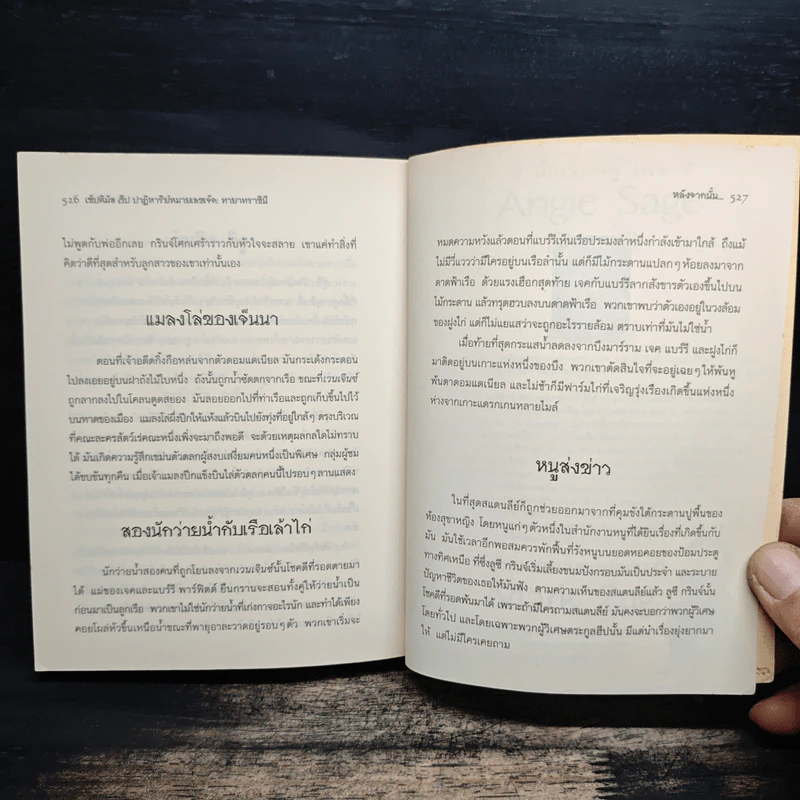 526 เซ็ปติมัส ฮีป ปาฏิหาริย์หมายเลขเจ็ด: ทายาทราชินี
ไม่พูดกับพ่ออีกเลย กรินจ์โศกเศร้าราวกับหัวใจจะสลาย เขาแค่ทำสิ่งที่
คิดว่าดีที่สุดสำหรับลูกสาวของเขาเท่านั้นเอง
แมลงโล่ของเจ็นนา
ตอนที่เจ้าอดีตกิ้งกือหล่นจากตัวดอมแดเนียล มันกระเด้งกระดอน
ไปลงเอยอยู่บนฝาถังไม้ใบหนึ่ง ถังนั้นถูกน้ำซัดตกจากเรือ ขณะที่เวนเจ็นซ์
ถูกลากลงไปในโคลนดูดสยอง มันลอยออกไปที่ท่าเรือและถูกเก็บขึ้นไปไว้
บนหาดของเมือง แมลงโล่ผึ่งปีกให้แห้งแล้วบินไปยังทุ่งที่อยู่ใกล้ๆ ตรงบริเวณ
ที่คณะละครสัตว์เร่คณะหนึ่งเพิ่งจะมาถึงพอดี จะด้วยเหตุผลกลใดไม่ทราบ
ได้ มันเกิดความรู้สึกเขม่นตัวตลกผู้สงบเสงี่ยมคนหนึ่งเป็นพิเศษ กลุ่มผู้ชม
ได้ขบขันทุกคืน เมื่อเจ้าแมลงปีกแข็งบินไล่ตัวตลกคนนี้ไปรอบๆ ลานแสดง
สองนักว่ายน้ำกับเรือเล้าไก่
นักว่ายน้ำสองคนที่ถูกโยนลงจากเวนเจ็นซ์นั้นโชคดีที่รอดตายมา
ได้ แม่ของเจคและแบร์รี พาร์ฟิตต์ ยืนกรานจะสอนทั้งคู่ให้ว่ายน้ำเป็น
ก่อนมาเป็นลูกเรือ พวกเขาไม่ใช่นักว่ายน้ำที่เก่งกาจอะไรนัก และทำได้เพียง
คอยโผล่หัวขึ้นเหนือน้ำขณะที่พายุอาละวาดอยู่รอบๆ ตัว พวกเขาเริ่มจะ
หลังจากนั้น... 527
หมดความหวังแล้วตอนที่แบร์รีเห็นเรือประมงลำหนึ่งกำลังเข้ามาใกล้ ถึงแม้
ไม่มีวี่แววว่ามีใครอยู่บนเรือลำนั้น แต่ก็มีไม้กระดานแปลกๆ ห้อยลงมาจาก
ดาดฟ้าเรือ ด้วยแรงเฮือกสุดท้าย เจคกับแบร์รีลากสังขารตัวเองขึ้นไปบน
ไม้กระดาน แล้วทรุดฮวบลงบนดาดฟ้าเรือ พวกเขาพบว่าตัวเองอยู่ในวงล้อม
ของฝูงไก่ แต่ก็ไม่แยแสว่าจะถูกอะไรรายล้อม ตราบเท่าที่มันไม่ใช่น้ำ
เมื่อท้ายที่สุดกระแสน้ำลดลงจากบึงมาร์ราม เจค แบร์รี และฝูงไก่ก็
มาติดอยู่บนเกาะแห่งหนึ่งของบึง พวกเขาตัดสินใจที่จะอยู่เฉยๆ ให้พ้นหู
พ้นตาดอมแดเนียล และไม่ช้าก็มีฟาร์มไก่ที่เจริญรุ่งเรืองเกิดขึ้นแห่งหนึ่ง
ห่างจากเกาะแดรกเกนหลายไมล์
หนูส่งข่าว
ในที่สุดสแตนลีย์ก็ถูกช่วยออกมาจากที่คุมขังใต้กระดานปูพื้นของ
ห้องสุขาหญิง โดยหนูแก่ๆ ตัวหนึ่งในสำนักงานหนูที่ได้ยินเรื่องที่เกิดขึ้นกับ
มัน มันใช้เวลาอีกพอสมควรพักฟื้นที่รังหนูบนยอดหอคอยของป้อมประตู
ทางทิศเหนือ ที่ซึ่งลูซี กรินจ์เริ่มเลี้ยงขนมปังกรอบมันเป็นประจำ และระบาย
ปัญหาชีวิตของเธอให้มันฟัง ตามความเห็นของสแตนลีย์แล้ว ลูซี กรินจ์นั้น
โชคดีที่รอดพ้นมาได้ เพราะถ้ามีใครถามสแตนลีย์ มันคงจะบอกว่าพวกผู้วิเศษ
โดยทั่วไป และโดยเฉพาะพวกผู้วิเศษตระกูลฮีปนั้น มีแต่นำเรื่องยุ่งยากมา
ให้ แต่ไม่มีใครเคยถาม